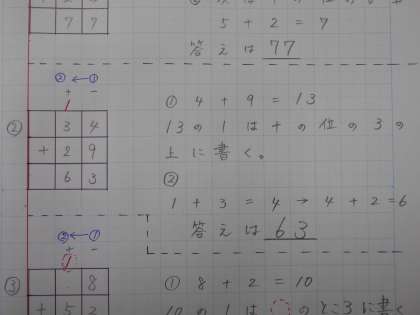 7 7
5 + 2 = 7
答えは 77
② ← ①
+ −
1
② 3 4
+ 2 9
6 3
① 4 + 9 = 13
13の1は十の位の3の
上に書く。
②
1 + 3 = 4 → 4 + 2 = 6
答えは 63
② ← ①
+ −
1
③ 8
+ 5 2
① 8 + 2 = 10
10の1は のところに書く